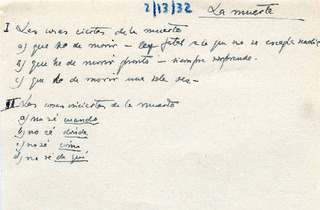 2/13/32 La muerte
I Las cosas ciertas de la muerte
a) que he de morir – ley fatal a la que no se escapa nadie
b) que he de morir pronto – siempre
c) que he de morir una sola vez –
II Las cosas inciertas de la muerte
a) no sé cuando
b) no sé donde
c) no sé cómo
d) no sé de qué